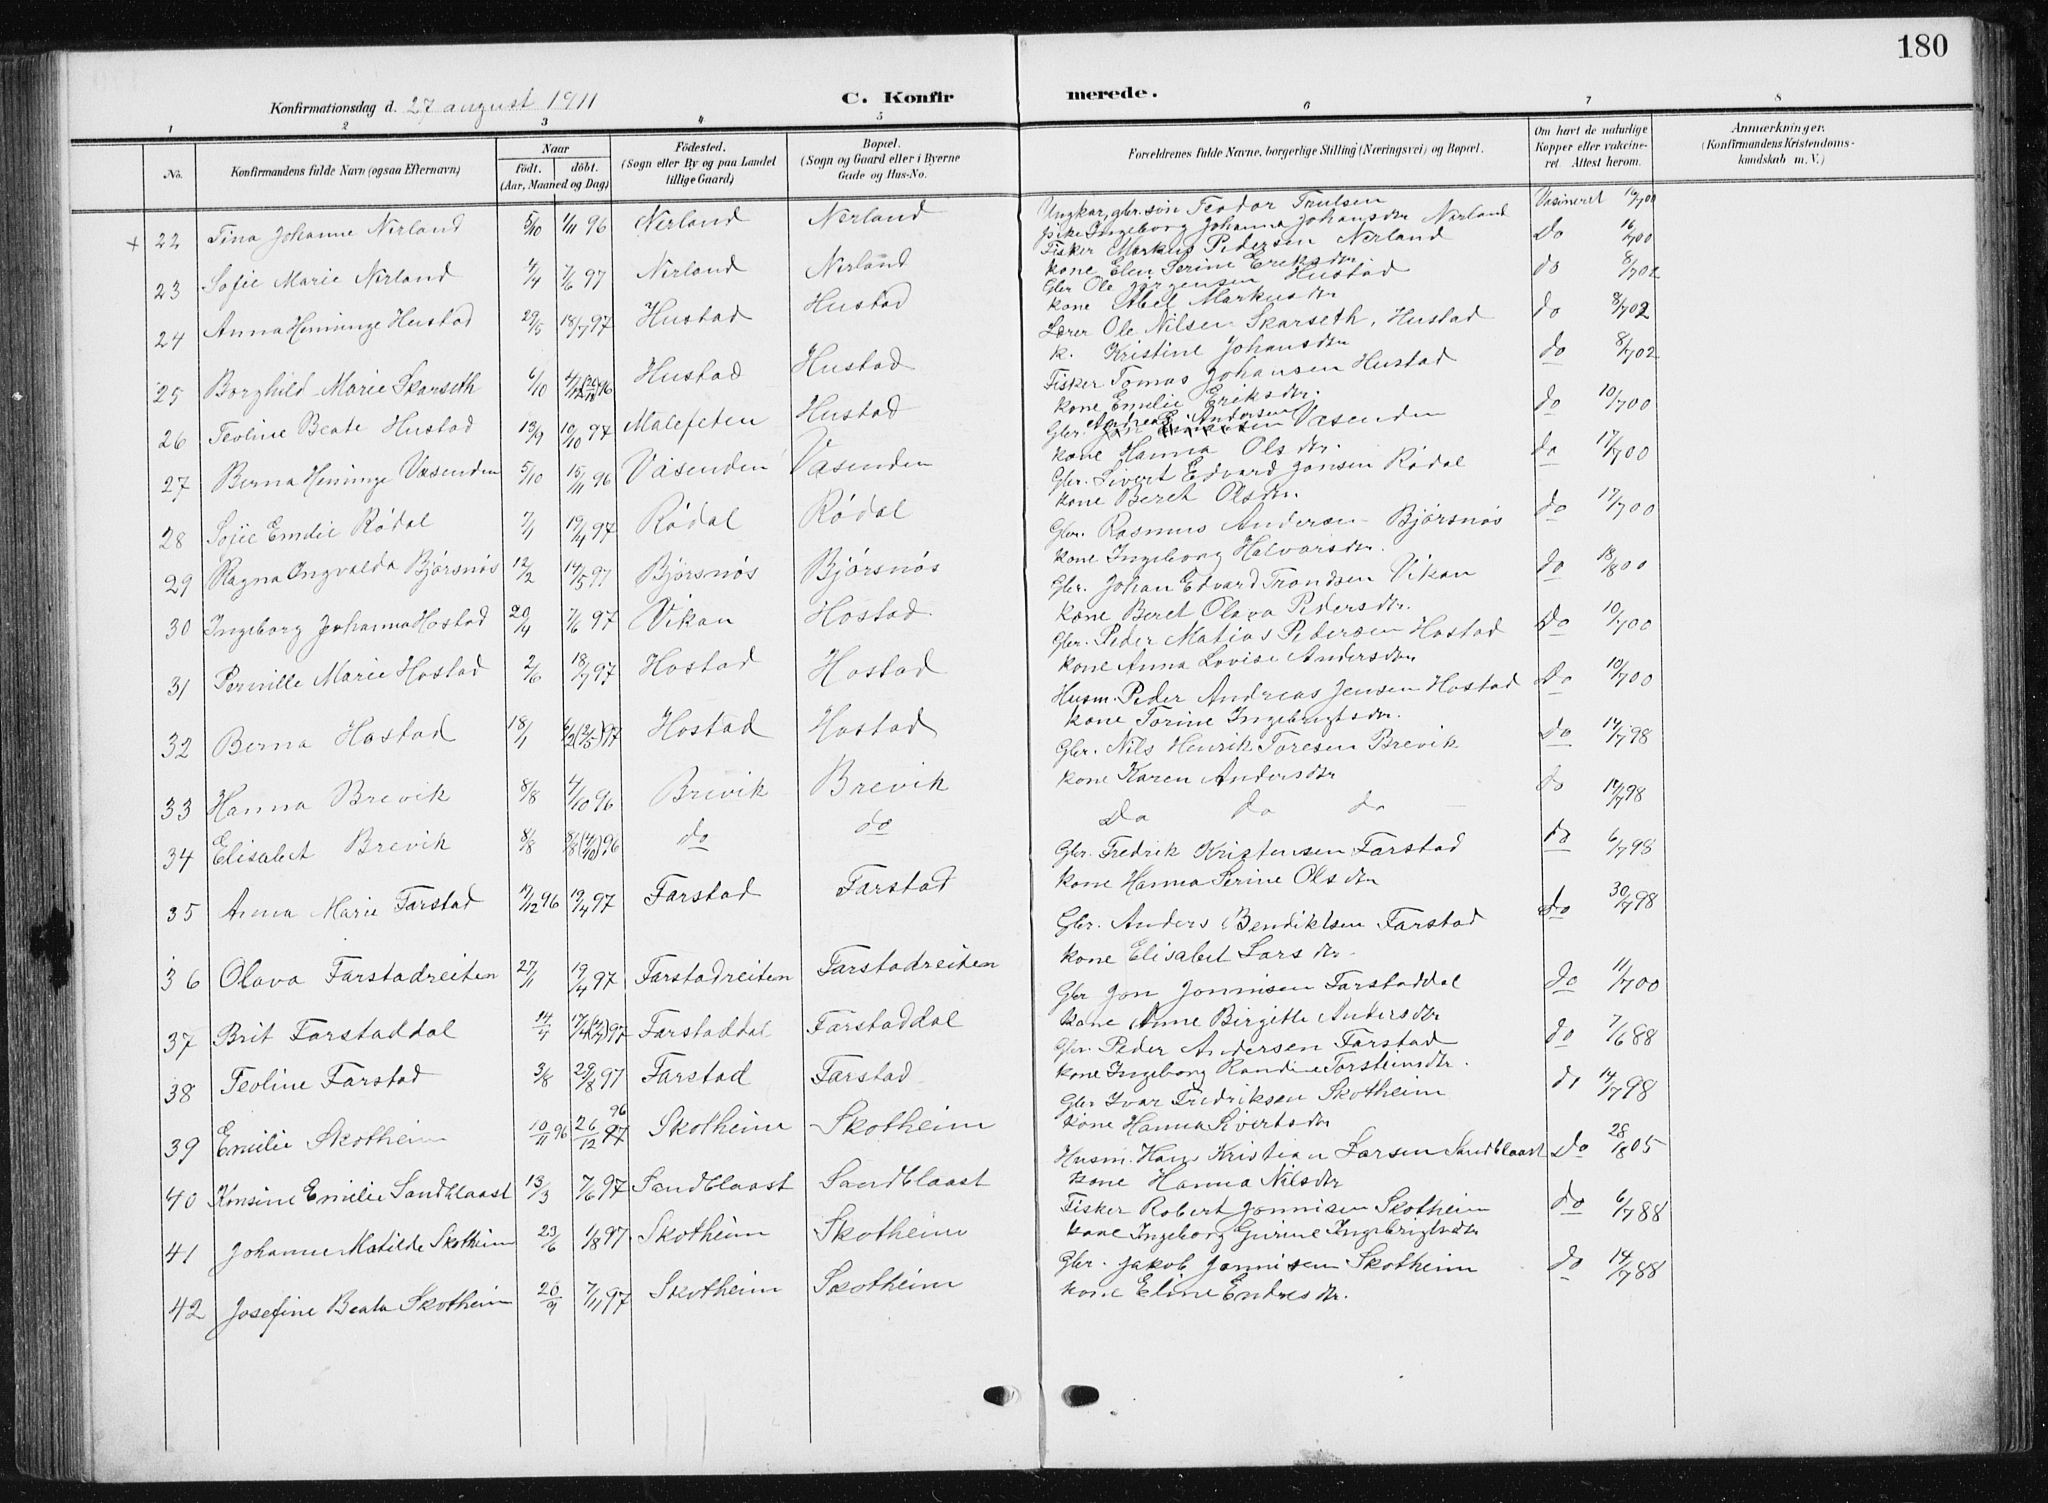 180
Konfirmationsdag d. 27 august 1911
C. Konfirmerede.
1 2 3 4 5 6 7 8
No.
Konfirmandens fulde Navn (ogsaa Efternavn)
Naar
födt. döbt.
(Aar, Maaned og Dag)
Födested.
(Sogn eller By og paa Landet tillige Gaard)
Bopæl.
(Sogn og Gaard eller i Byerne Gade og Hus-No.
Forældrenes fulde Navne, borgerlige Stilling (Næringsvei) og Bopæl.
Om havt de naturlige Kopper eller vakcineret. Attest herom.
Anmærkninger.
(Konfirmandens Kristendomskundskab m. V.)
+ 22 Tina Johanne Nerland 5/10 1/11 96 Nerland Nerland Ungkar, gbr.søn Teodor Trulsen Vasineret 16/7 00
pike Ingeborg Johanna Johansdtr Nerland
23 Sofie Marie Nerland 4/4 7/6 97 Nerland Nerland Fisker Markus Pedersen Nerland do 16/7 00
kone Elen Serine Eriksdtr.
24 Anna Heninge Hustad 29/5 18/7 97 Hustad Hustad Gbr Ole Jørgensen Hustad do 8/7 02
kone Abel Markusdtr
25 Borghild Marie Skarseth 6/10 4/12 96 Hustad Hustad Lærer Ole Nilsen Skarseth, Hustad do 8/7 02
k. Kristine Johansdtr
26 Teoline Beate Hustad 13/9 10/10 97 Malefeten Hustad Fisker Tomas Johansen Hustad do 8/7 02
kone Emilie Eriksdtr.
27 Berna Heninge Vasenden 5/10 15/11 96 Vasenden Vasenden Gbr. Andreas Andersen Vasenden do 10/7 00
kone Hanna Olsdtr.
28 Sofie Emelie Rødal 7/1 19/4 97 Rødal Rødal Gbr. Sivert Edvard Jonsen Rødal do 17/7 00
kone Beret Olsdtr.
29 Ragna Ingvalda Bjørsnøs 12/2 14/5 97 Bjørsnøs Bjørsnøs Gbr. Rasmus Andersen Bjørsnøs do 17/7 00
kone Ingeborg Halvarsdtr.
30 Ingeborg Johanna Hostad 20/4 7/6 97 Vikan Hostad Gbr. Johan Edvard Trondsen Vikan do 18/8 00
kone Beret Olava Pedersdtr.
31 Pernille Marie Hostad 2/6 18/7 97 Hostad Hostad Gbr. Peder Matias Pedersen Hostad Do 10/7 00
kone Anna Lovise Andersdtr
32 Berna Hostad 18/1 6/2 (2/5) 97 Hostad Hostad Husm. Peder Andreas Jensen Hostad Do 10/7 00
kone Torine Ingebrigtsdtr.
33 Hanna Brevik 8/8 4/10 96 Brevik Brevik Gbr. Nils Henrik Toresen Brevik do 14/7 98
kone Karen Andersdtr
34 Elisabet Brevik 8/8 8/8 (4/10) 96 do do Do do do do 14/7 98
35 Anna Marie Farstad 17/12 96 19/4 97 Farstad Farstad Gbr. Fredrik Kristensen Farstad do 6/7 98
kone Hanna Serine Olsdtr
36 Olava Farstadreiten 27/1 19/4 97 Farstadreiten Farstadreiten Gbr. Anders Bendiktsen Farstad do 30/7 98
kone Elisabet Larsdtr.
37 Brit Farstaddal 14/4 97 Farstaddal Farstaddal Gbr Jon Jonnisen Farstaddal do 11/7 00
kone Anne Birgitte Andersdtr
38 Teoline Farstad 3/8 29/8 97 Farstad Farstad Gbr. Peder Andersen Farstad do 7/6 88
kone Ingeborg Randine Torsteinsdtr.
39 Emilie Skotheim 10/11 96 26/12 97 96 Skotheim Skotheim Gbr Ivar Fredriksen Skotheim do 14/7 98
kone Hanna Sivertsdtr
40 Konsine Emelie Sandblaast 13/3 7/6 97 Sandblaast Sandblaast Husm. Hans Kristian Larsen Sandblaast Do 28/8 05
kone Hanna Nilsdtr
41 Johanne Matilde Skotheim 23/6 1/8 97 Skotheim Skotheim Fisker Robert Jonnisen Skotheim do 6/7 88
kone Ingeborg Gurine Ingebrigtsdtr
42 Josefine Beata Skotheim 20/9 7/11 97 Skotheim Skotheim Gbr. Jakob Jonnisen Skotheim do 14/7 88
kone Eline Endresdtr.